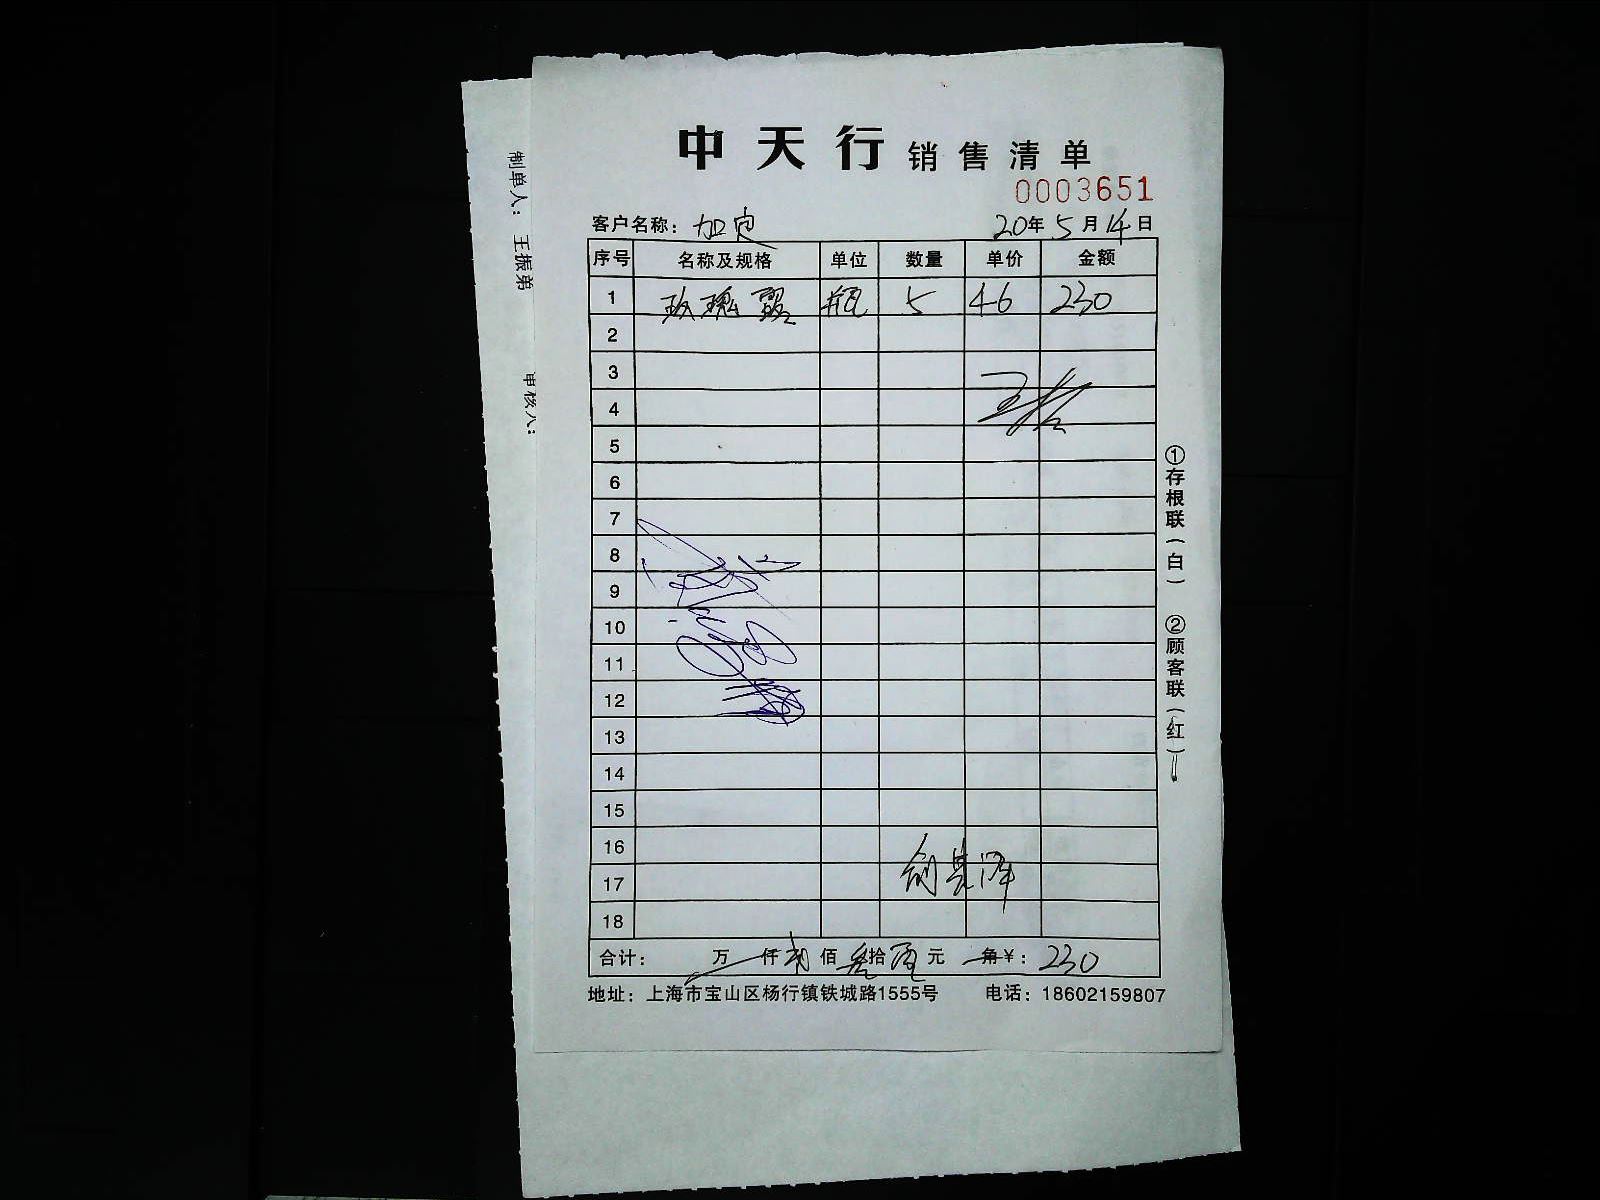 中天行 销售清单
0003651
客户名称: 加定 20年5月14日
序号 名称及规格 单位 数量 单价 金额
1 玫瑰露 瓶 5 46 230
2
3
4
5
6
7
8
9
10
11
12
13
14
15
16
17
18
合计: 万 仟 贰佰 叁拾 零元 角 ¥: 230
地址: 上海市宝山区杨行镇铁城路1555号 电话: 18602159807
①存根联(白) ②顾客联(红)
制单人: 王振弟 审核人: